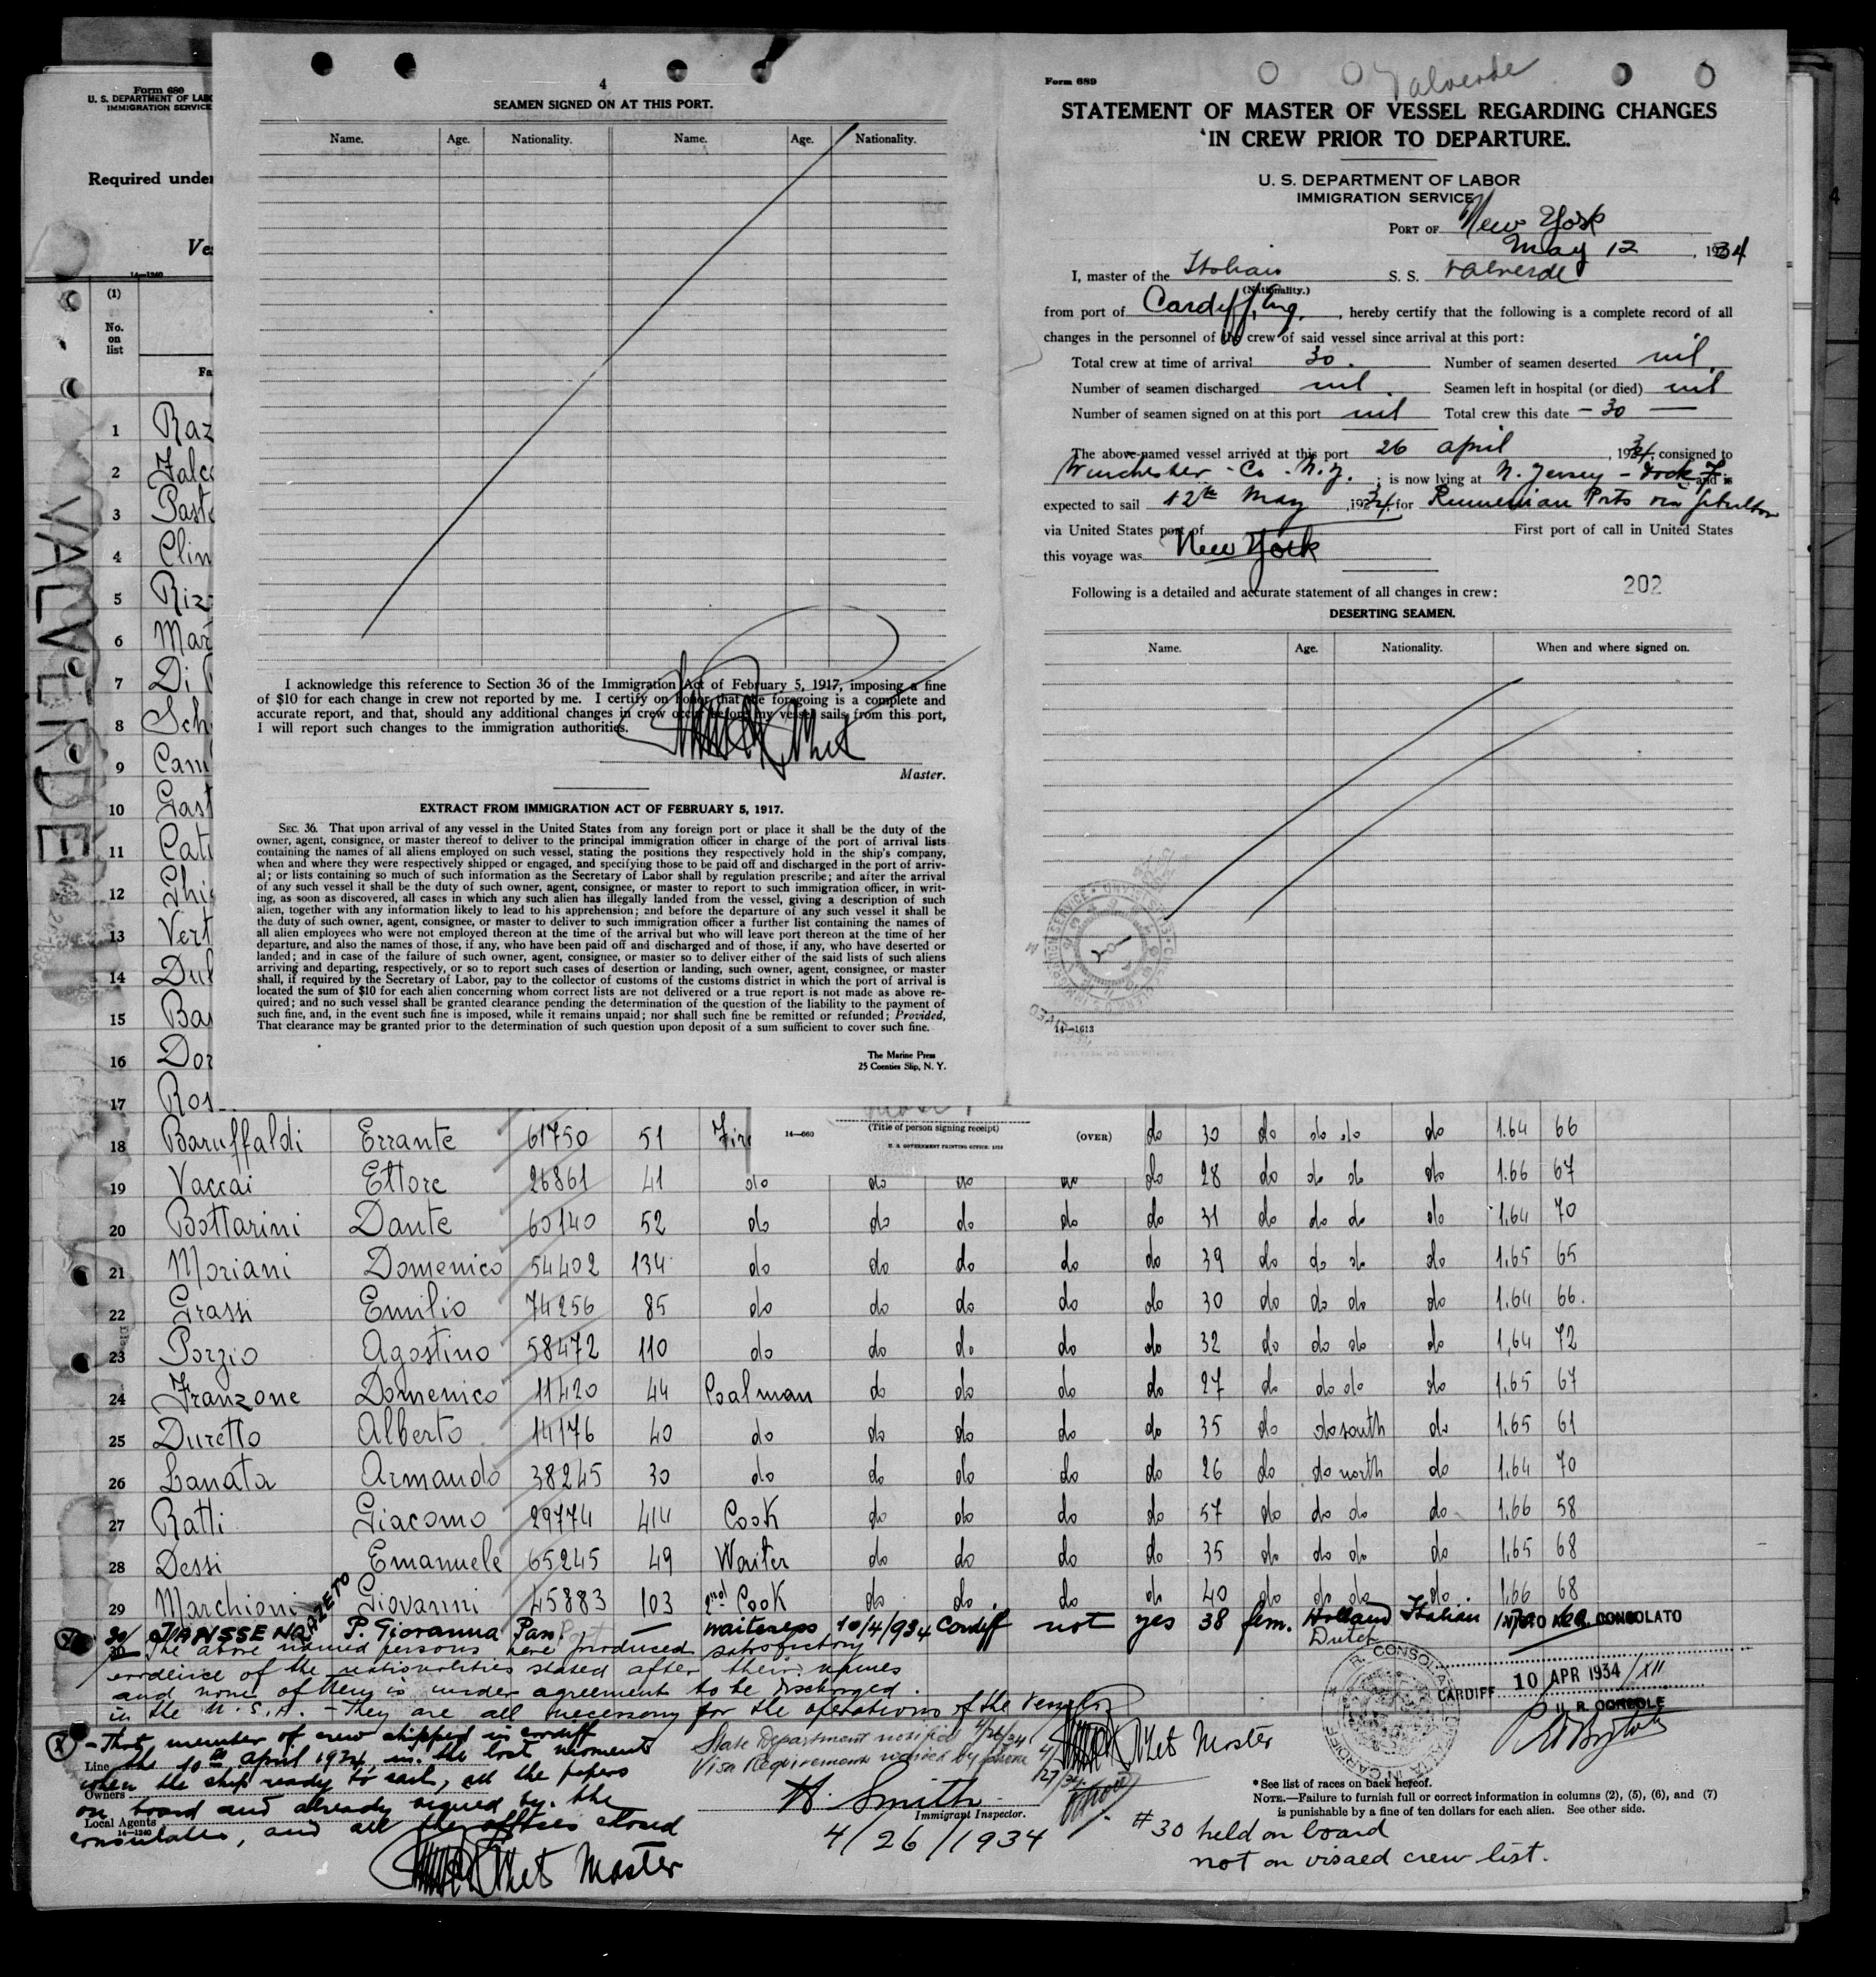 Form 680
U. S. DEPARTMENT OF LAB
IMMIGRATION SERVICE
Required under
Ve
14—1240
(1)
No.
on
list
Fa
VALVERDE
1 Raz
2 Falc
3 Past
4 Clin
5 Riz
6 Mar
7 Di
8 Sch
9 Cam
10 Gast
11 Cat
12 Ghi
13 Vert
14 Dul
15 Ba
16 Do
17 Ros
4
SEAMEN SIGNED ON AT THIS PORT.
Name. Age. Nationality. Name. Age. Nationality.
I acknowledge this reference to Section 36 of the Immigration Act of February 5, 1917, imposing a fine
of $10 for each change in crew not reported by me. I certify on honor that the foregoing is a complete and
accurate report, and that, should any additional changes in crew occur before my vessel sails from this port,
I will report such changes to the immigration authorities.
Master.
EXTRACT FROM IMMIGRATION ACT OF FEBRUARY 5, 1917.
SEC. 36. That upon arrival of any vessel in the United States from any foreign port or place it shall be the duty of the
owner, agent, consignee, or master thereof to deliver to the principal immigration officer in charge of the port of arrival lists
containing the names of all aliens employed on such vessel, stating the positions they respectively hold in the ship's company,
when and where they were respectively shipped or engaged, and specifying those to be paid off and discharged in the port of arriv-
al; or lists containing so much of such information as the Secretary of Labor shall by regulation prescribe; and after the arrival
of any such vessel it shall be the duty of such owner, agent, consignee, or master to report to such immigration officer, in writ-
ing, as soon as discovered, all cases in which any such alien has illegally landed from the vessel, giving a description of such
alien, together with any information likely to lead to his apprehension; and before the departure of any such vessel it shall be
the duty of such owner, agent, consignee, or master to deliver to such immigration officer a further list containing the names of
all alien employees who were not employed thereon at the time of the arrival but who will leave port thereon at the time of her
departure, and also the names of those, if any, who have been paid off and discharged and of those, if any, who have deserted or
landed; and in case of the failure of such owner, agent, consignee, or master so to deliver either of the said lists of such aliens
arriving and departing, respectively, or so to report such cases of desertion or landing, such owner, agent, consignee, or master
shall, if required by the Secretary of Labor, pay to the collector of customs of the customs district in which the port of arrival is
located the sum of $10 for each alien concerning whom correct lists are not delivered or a true report is not made as above re-
quired; and no such vessel shall be granted clearance pending the determination of the question of the liability to the payment of
such fine, and, in the event such fine is imposed, while it remains unpaid; nor shall such fine be remitted or refunded; Provided,
That clearance may be granted prior to the determination of such question upon deposit of a sum sufficient to cover such fine.
The Marine Press
25 Coenties Slip, N. Y.
Form 689
Valverde
STATEMENT OF MASTER OF VESSEL REGARDING CHANGES
IN CREW PRIOR TO DEPARTURE.
U. S. DEPARTMENT OF LABOR
IMMIGRATION SERVICE
PORT OF New York
May 12, 1934
I, master of the Italian S. S. Valverde
(Nationality.)
from port of Cardiff, Eng., hereby certify that the following is a complete record of all
changes in the personnel of the crew of said vessel since arrival at this port:
Total crew at time of arrival 30. Number of seamen deserted nil
Number of seamen discharged nil Seamen left in hospital (or died) nil
Number of seamen signed on at this port nil Total crew this date — 30 —
The above-named vessel arrived at this port 26 april, 1934, consigned to
Winchester - Co. N.Y.; is now lying at N. Jersey - Dock F and is
expected to sail 12th May, 1934, for Rumenian Ports via
via United States port of First port of call in United States
this voyage was New York
Following is a detailed and accurate statement of all changes in crew: 202
DESERTING SEAMEN.
Name. Age. Nationality. When and where signed on.
14—1613
(Title of person signing receipt)
14—660 (OVER)
U. S. GOVERNMENT PRINTING OFFICE
18 Baruffaldi Errante 61750 51 Fir do 30 do do do do 1.64 66
19 Vaccai Ettore 26861 41 do do do do do 28 do do do do 1.66 67
20 Bottarini Dante 60140 52 do do do do do 31 do do do do 1.64 70
21 Moriani Domenico 54402 134 do do do do do 39 do do do do 1.65 65
22 Grassi Emilio 74256 85 do do do do do 30 do do do do 1.64 66.
23 Porzio Agostino 58472 110 do do do do do 32 do do do do 1,64 72
24 Franzone Domenico 11420 44 Coalman do do do do 27 do do do do 1.65 67
25 Duretto Alberto 14176 40 do do do do do 35 do do south do 1.65 61
26 Lanata Armando 38245 30 do do do do do 26 do do north do 1.64 70
27 Ratti Giacomo 29774 414 Cook do do do do 57 do do do do 1.66 58
28 Dessi Emanuele 65245 49 Waiter do do do do 35 do do do do 1.65 68
29 Marchioni Giovanni 45883 103 2nd Cook do do do do 40 do do do do 1.66 68
30 JANSSEN P. Giovanna Pas. — waitress 10/4/934 Cardiff not yes 38 fem. Holland Italian
Dutch
The above named persons have produced satisfactory
evidence of the nationalities stated after their names
and none of them is under agreement to be discharged.
in the U.S.A. - They are all necessary for the operations of the vessel
CONSOLATO
CARDIFF 10 APR 1934/XII
R. CONSOLE
(X) - That member of crew shipped in cardiff
the 10th april 1934, in the last moment
when the ship ready to sail, all the papers
on board and already signed by the
consulates, and all the offices closed
Master
Line
Owners
Local Agents
14—1240
State Department notified 4/26/34
Visa Requirements waived by phone 4/27/34.
Master
H. Smith
Immigrant Inspector.
4/26/1934
*See list of races on back hereof.
NOTE.—Failure to furnish full or correct information in columns (2), (5), (6), and (7)
is punishable by a fine of ten dollars for each alien. See other side.
#30 held on board
not on visaed crew list.